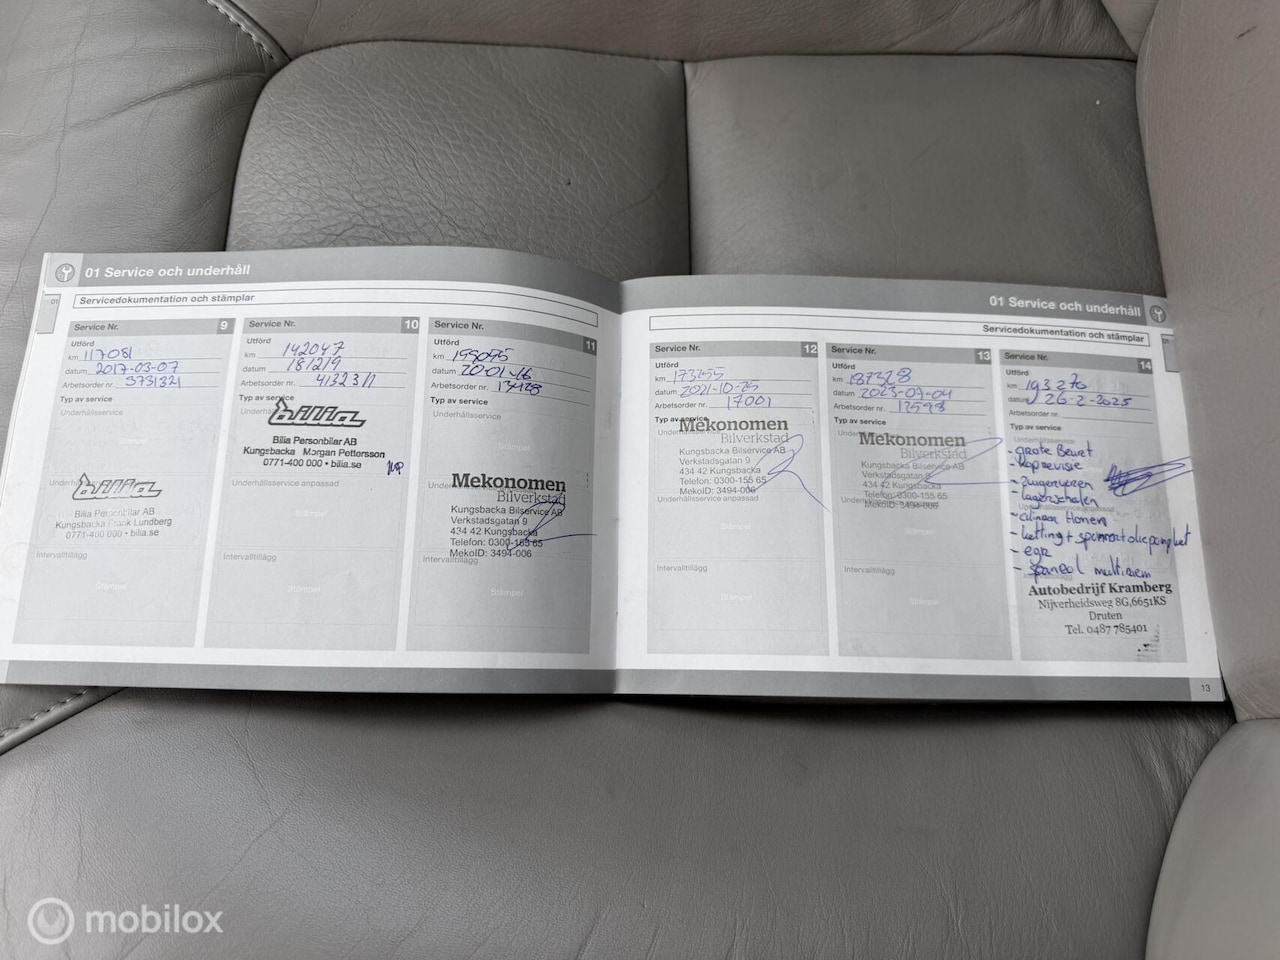 01 Service och underhåll
01
Servicedokumentation och stämplar
Service Nr. 9
Utförd
km 117081
datum 2017-03-07
Arbetsorder nr. 5731321
Typ av service
Underhållsservice
Stämpel
bilia
Bilia Personbilar AB
Kungsbacka Frank Lundberg
0771-400 000 • bilia.se
Intervalltillägg
Stämpel
Service Nr. 10
Utförd
km 142047
datum 181219
Arbetsorder nr.
Typ av service
bilia
Bilia Personbilar AB
Kungsbacka Morgan Pettersson
0771-400 000 • bilia.se
Underhållsservice anpassad
Stämpel
Intervalltillägg
Stämpel
Service Nr. 11
Utförd
km
datum 20-01-16
Arbetsorder nr.
Typ av service
Underhållsservice
Stämpel
Mekonomen
Bilverkstad
Kungsbacka Bilservice AB
Verkstadsgatan 9
434 42 Kungsbacka
Telefon: 0300-155 65
MekoID: 3494-006
Intervalltillägg
Stämpel
01 Service och underhåll
Servicedokumentation och stämplar
Service Nr. 12
Utförd
km 173255
datum 2021-10-25
Arbetsorder nr. 17001
Typ av service
Mekonomen
Bilverkstad
Kungsbacka Bilservice AB
Verkstadsgatan 9
434 42 Kungsbacka
Telefon: 0300-155 65
MekoID: 3494-006
Underhållsservice anpassad
Stämpel
Intervalltillägg
Stämpel
Service Nr. 13
Utförd
km 187328
datum 2023-07-04
Arbetsorder nr. 12598
Typ av service
Mekonomen
Bilverkstad
Kungsbacka Bilservice AB
Verkstadsgatan 9
434 42 Kungsbacka
Telefon: 0300-155 65
MekoID: 3494-006
Stämpel
Intervalltillägg
Stämpel
Service Nr. 14
Utförd
km 193276
datum 26-2-2025
Arbetsorder nr.
Typ av service
- grote Beurt
- koprevisie
- zuigerveren
- lagerschalen
- cilinder Honen
- ketting +
- egr
- multiriem
Autobedrijf Kramberg
Nijverheidsweg 8G,6651KS
Druten
Tel. 0487 785401
13
mobilox